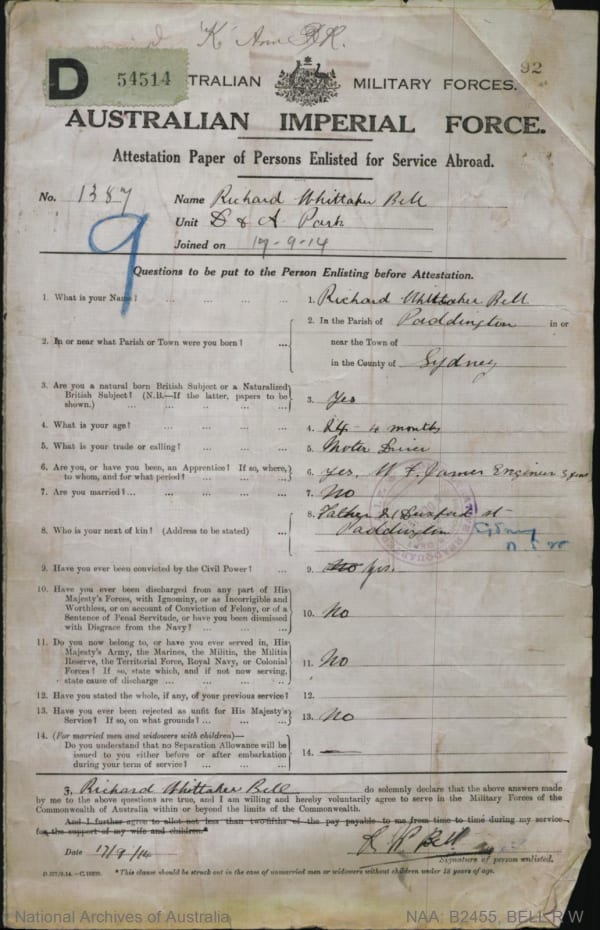 'K'
92
D 54514 TRALIAN MILITARY FORCES.
AUSTRALIAN IMPERIAL FORCE.
Attestation Paper of Persons Enlisted for Service Abroad.
No. 1387 Name Richard Whittaker Bell
Unit D & A Park
Joined on 17-9-14
9
Questions to be put to the Person Enlisting before Attestation.
1. What is your Name? ... ... ... ... 1. Richard Whittaker Bell
2. In or near what Parish or Town were you born? ... 2. In the Parish of Paddington in or
near the Town of
in the County of Sydney
3. Are you a natural born British Subject or a Naturalized
British Subject? (N.B.—If the latter, papers to be
shown.) ... ... ... ... ... 3. Yes
4. What is your age? ... ... ... ... 4. 24 - 4 months
5. What is your trade or calling? ... ... ... 5. Motor Driver
6. Are you, or have you been, an Apprentice? If so, where,
to whom, and for what period? ... ... ... 6. Yes, W. F. James Engineer
7. Are you married? ... ... ... ... ... 7. No
8. Who is your next of kin? (Address to be stated) ... 8. Father st
Paddington Sydney
N.S.W
9. Have you ever been convicted by the Civil Power? ... 9. No Yes.
10. Have you ever been discharged from any part of His
Majesty's Forces, with Ignominy, or as Incorrigible and
Worthless, or on account of Conviction of Felony, or of a
Sentence of Penal Servitude, or have you been dismissed
with Disgrace from the Navy? ... ... ... 10. No
11. Do you now belong to, or have you ever served in, His
Majesty's Army, the Marines, the Militia, the Militia
Reserve, the Territorial Force, Royal Navy, or Colonial
Forces? If so, state which, and if not now serving,
state cause of discharge ... ... ... ... 11. No
12. Have you stated the whole, if any, of your previous service? 12.
13. Have you ever been rejected as unfit for His Majesty's
Service? If so, on what grounds? ... ... ... 13. No
14. (For married men and widowers with children)—
Do you understand that no Separation Allowance will be
issued to you either before or after embarkation
during your term of service? ... ... ... 14. —
I, Richard Whittaker Bell do solemnly declare that the above answers made
by me to the above questions are true, and I am willing and hereby voluntarily agree to serve in the Military Forces of the
Commonwealth of Australia within or beyond the limits of the Commonwealth.
And I further agree to allot not less than two-fifths of the pay payable to me from time to time during my service
for the support of my wife and children.*
Date 17/9/14 R W Bell
Signature of person enlisted.
D.377/9.14.—C.10929. *This clause should be struck out in the case of unmarried men or widowers without children under 18 years of age.
National Archives of Australia NAA: B2455, BELL R W